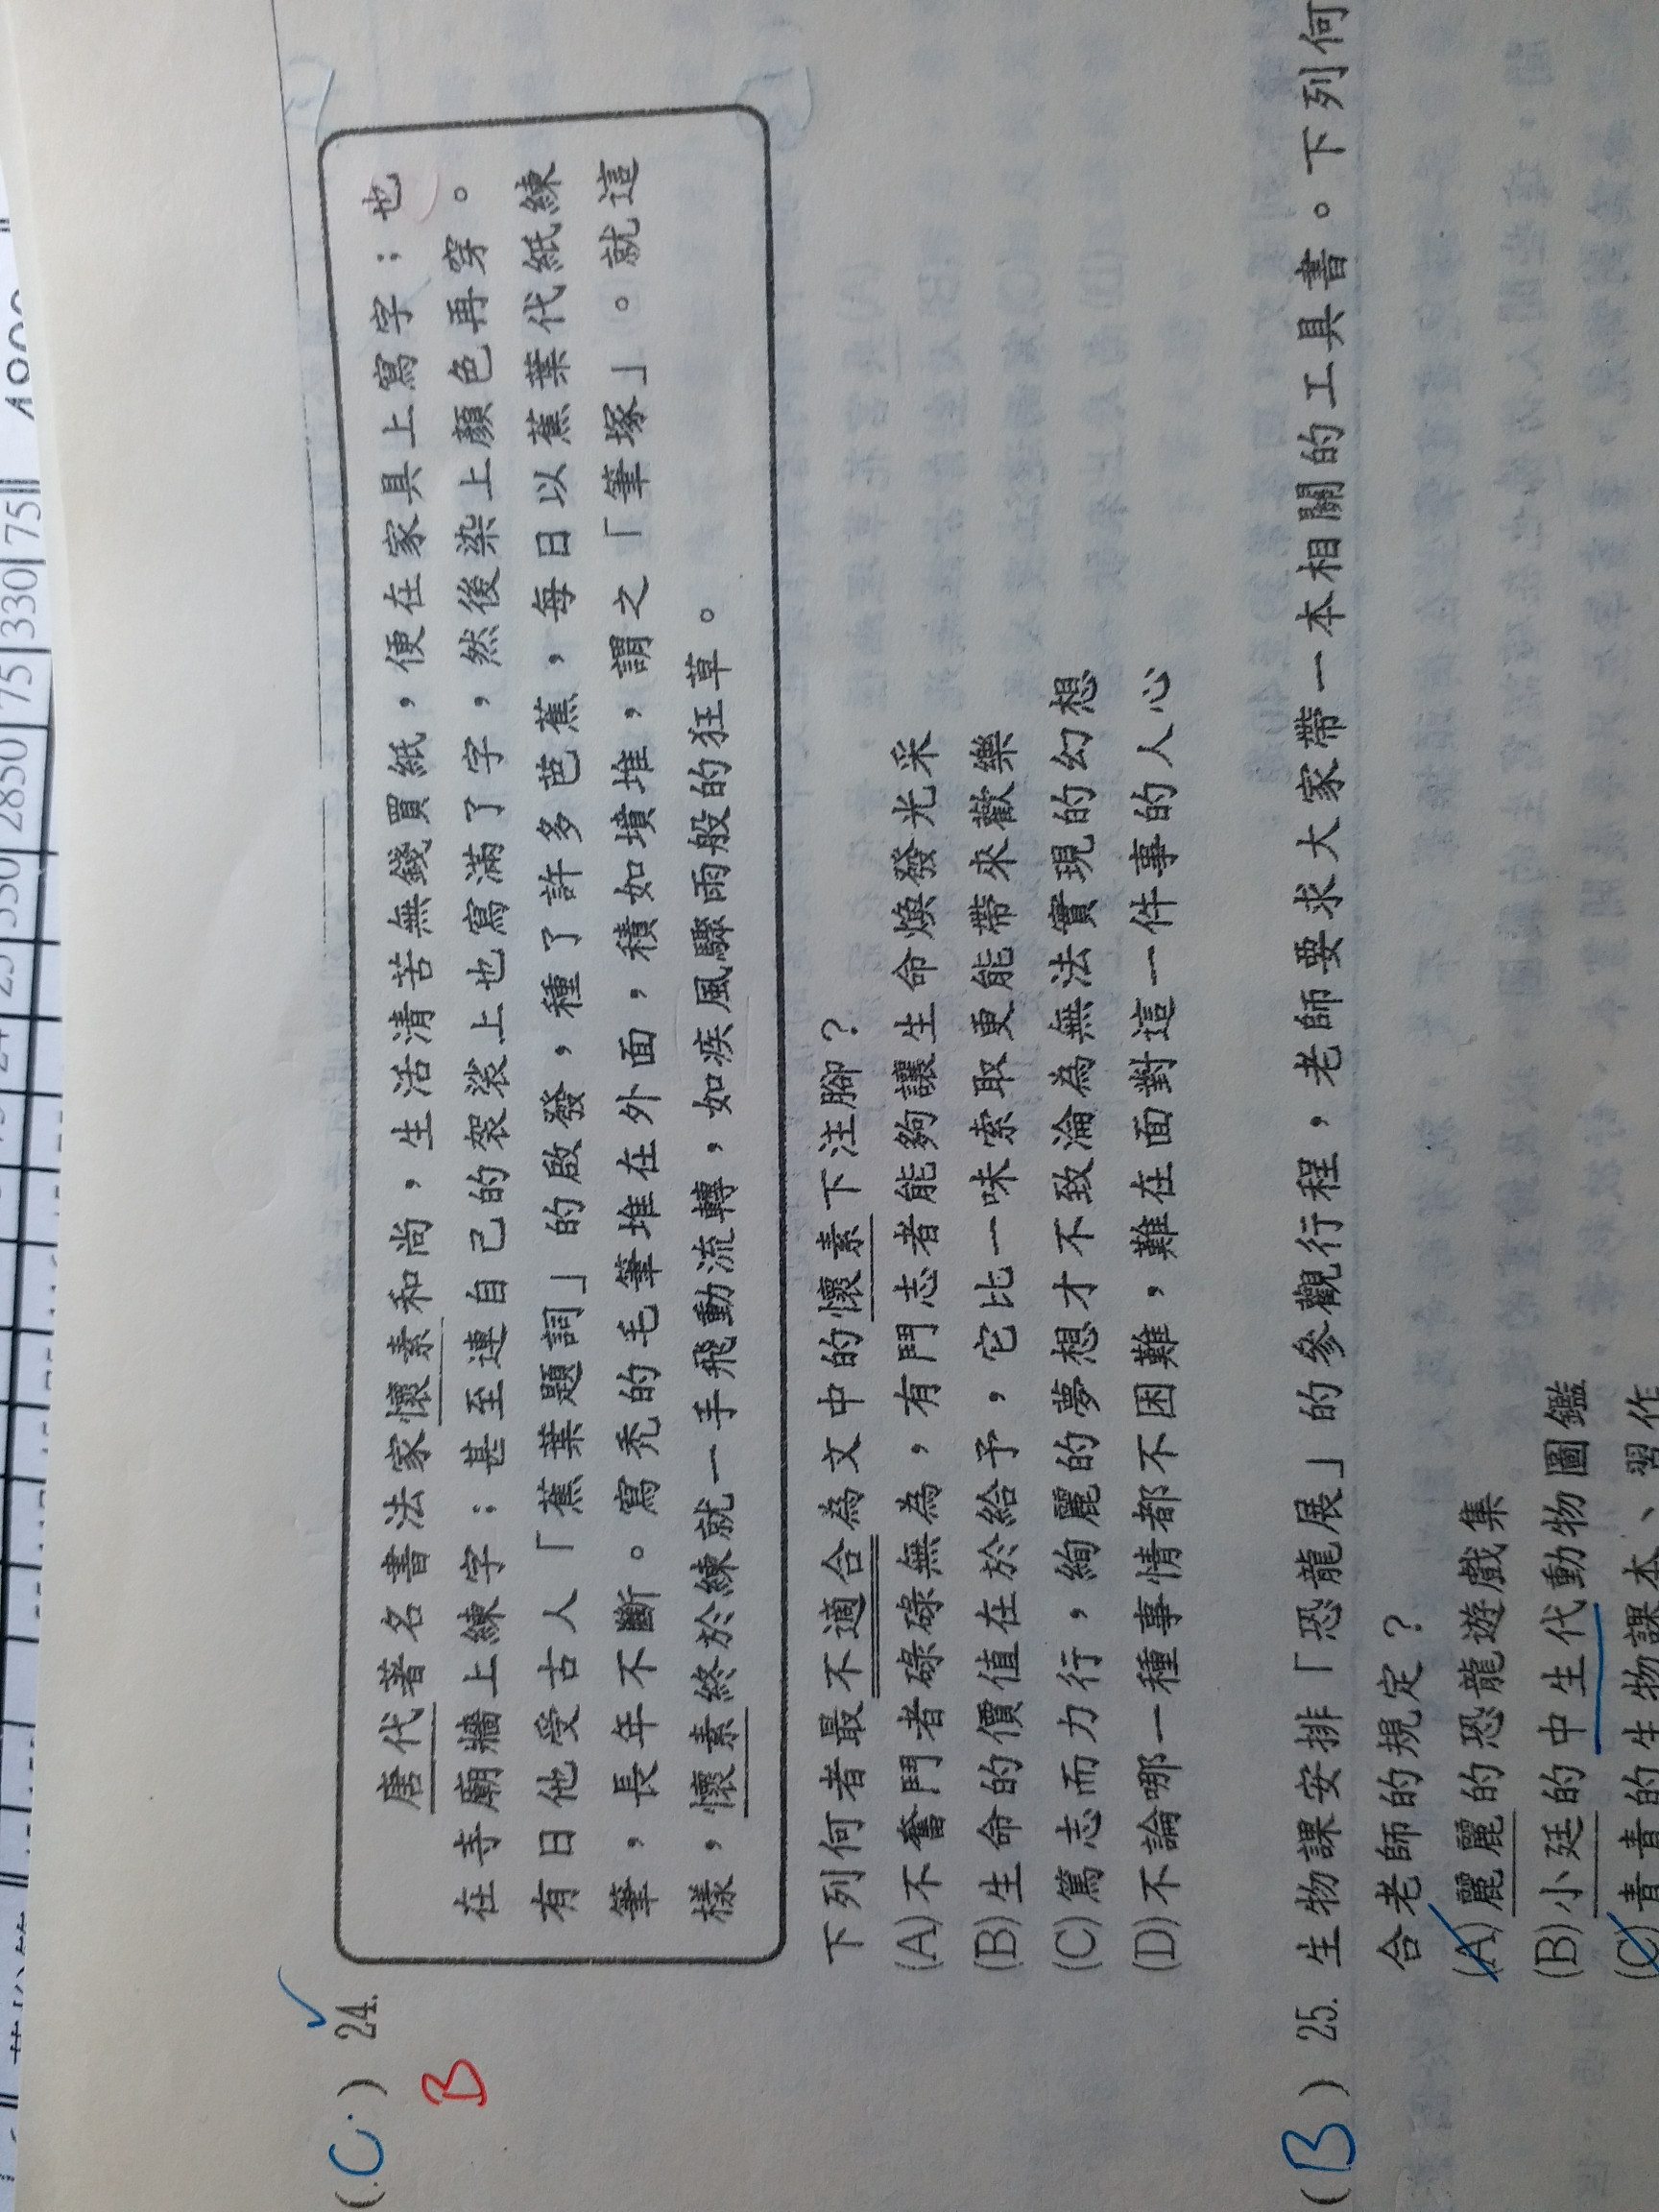 (C) 24.
B
唐代著名書法家懷素和尚，生活清苦無錢買紙，便在家具上寫字；也
在寺廟牆上練字；甚至連自己的袈裟上也寫滿了字，然後染上顏色再穿。
有日他受古人「蕉葉題詞」的啟發，種了許多芭蕉，每日以蕉葉代紙練
筆，長年不斷。寫禿的毛筆堆在外面，積如墳堆，謂之「筆塚」。就這
樣，懷素終於練就一手飛動流轉，如疾風驟雨般的狂草。
下列何者最不適合為文中的懷素下注腳？
(A)不奮鬥者碌碌無為，有鬥志者能夠讓生命煥發光采
(B)生命的價值在於給予，它比一味索取更能帶來歡樂
(C)篤志而力行，絢麗的夢想才不致淪為無法實現的幻想
(D)不論哪一種事情都不困難，難在面對這一件事的人心
(B) 25. 生物課安排「恐龍展」的參觀行程，老師要求大家帶一本相關的工具書。下列何
合老師的規定？
(A)麗麗的恐龍遊戲集
(B)小廷的中生代動物圖鑑
(C)青青的生物課本、習作
2850 75 330 75